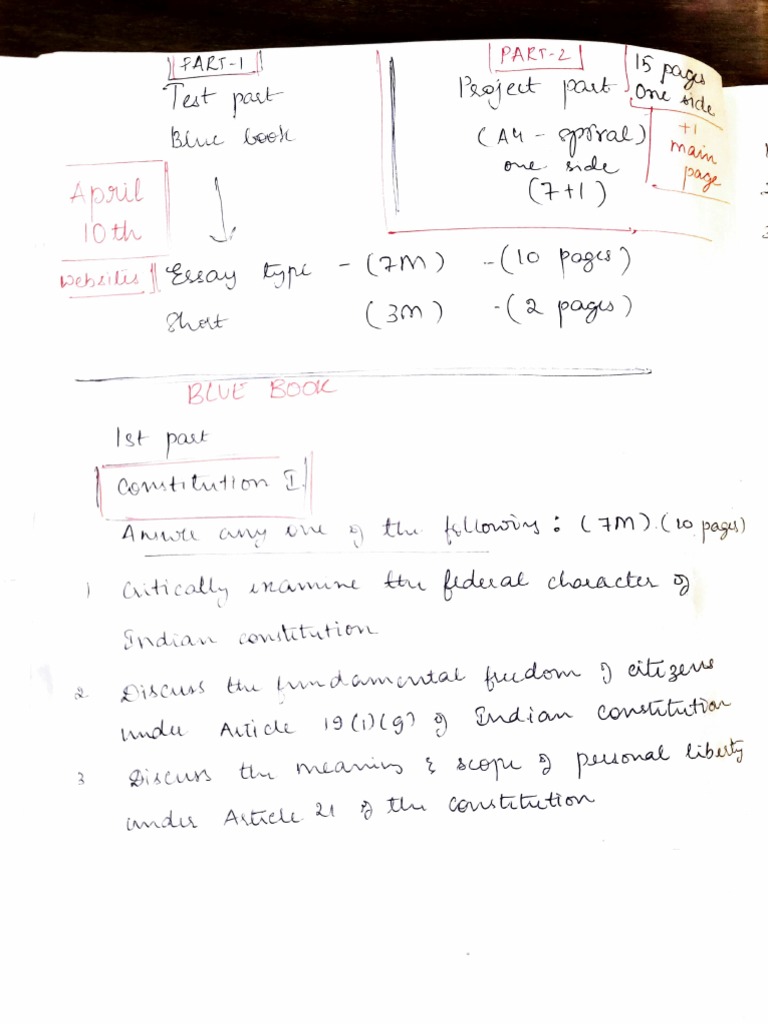 PART-1
Test part
Blue book
PART-2
Project part
(A4 - spiral)
one side
(7+1)
15 pages
One side
+1
main
page
April
10th
Websites
Essay type - (7M) - (10 pages)
Short (3M) - (2 pages)
BLUE BOOK
1st part
Constitution I.
Answe any one of the following : (7M). (10 pages)
1 Critically examine the federal character of
Indian constitution
2 Discuss the fundamental freedom of citizens
under Article 19(1)(g) of Indian constitution
3 Discuss the meaning & scope of personal liberty
under Article 21 of the constitution